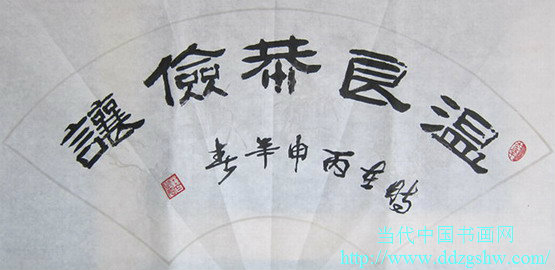 温良恭儉讓
丙申年春
当代中国书画网
http://www.ddzgshw.com/